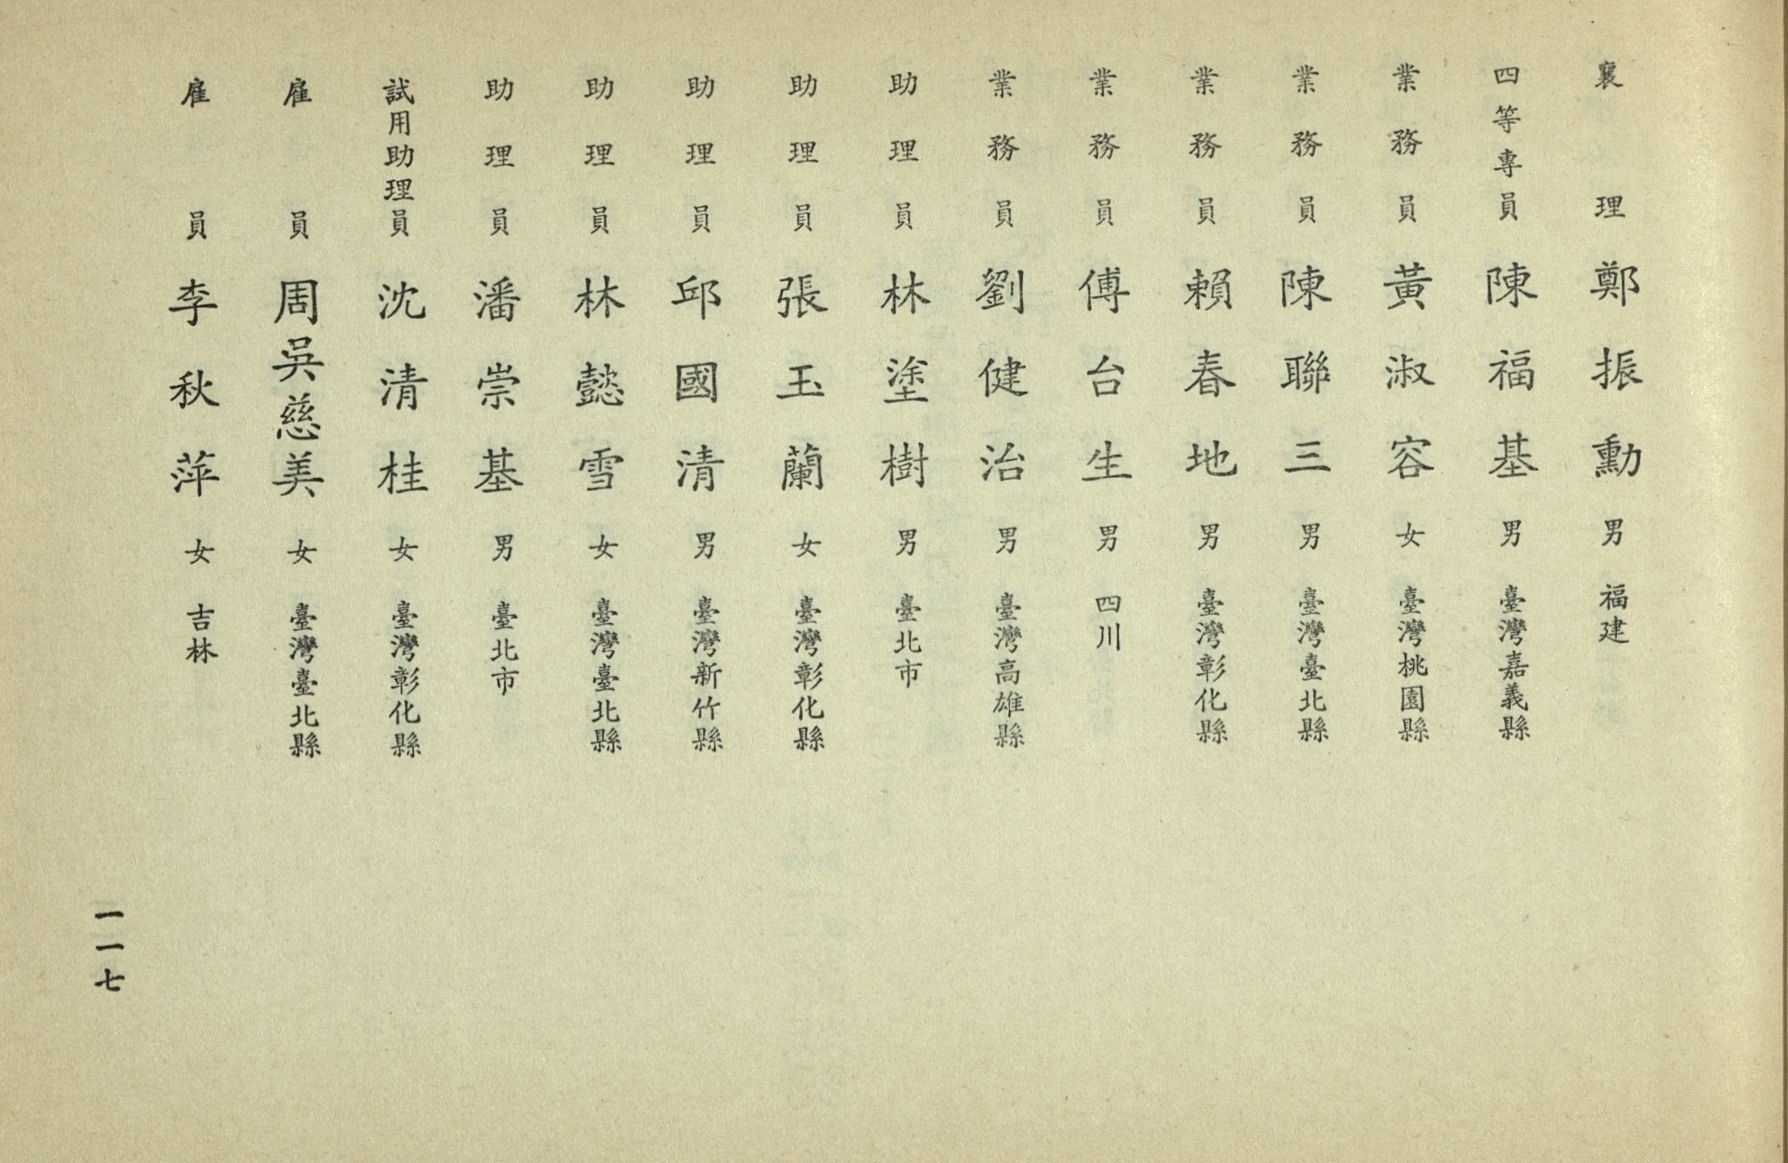 襄理鄭振勳男福建
四等專員陳福基男臺灣嘉義縣
業務員黃淑容女臺灣桃園縣
業務員陳聯三男臺灣臺北縣
業務員賴春地男臺灣彰化縣
業務員傅台生男四川
業務員劉健治男臺灣高雄縣
助理員林塗樹男臺北市
助理員張玉蘭女臺灣彰化縣
助理員邱國清男臺灣新竹縣
助理員林懿雪女臺灣臺北縣
助理員潘崇基男臺北市
試用助理員沈清桂女臺灣彰化縣
雇員周吳慈美女臺灣臺北縣
雇員李秋萍女吉林
一一七